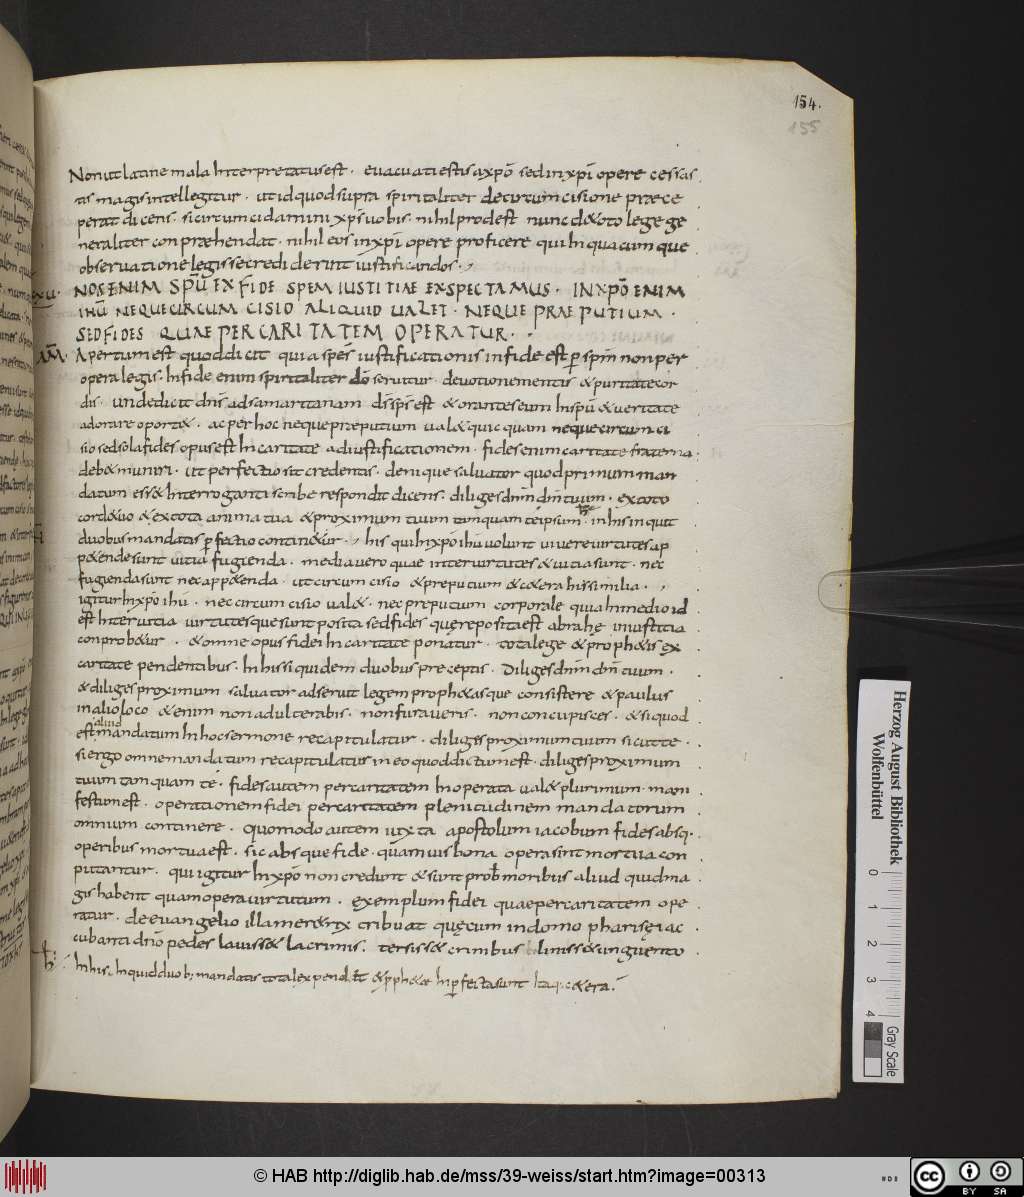 154.
155
Non ut latine mala interpretatus est · euacuati estis a xpō sed in xpī opere cessas
tis magis intellegitur · ut id quod supra spiritaliter de circumcisione præce
perat dicens · si circumcidamini xp̄s uobis · nihil prodest nunc de toto lege ge
neraliter conpræhendat · nihil eos in xpī opere proficere qui in quacumque
obseruatione legis se crediderint iustificandos ·,
NOS ENIM SPŪ EX FIDE SPEM IUSTITIAE EXSPECTAMUS · IN XPŌ ENIM
IHŪ NEQUE CIRCUMCISIO ALIQUID UALET · NEQUE PRAEPUTIUM ·
SED FIDES QUAE PER CARITATEM OPERATUR ·
Apertum est quod dicit quia spēs iustificationis in fide est p̱ spm̄ non per
opera legis · In fide enim spiritaliter dō seruitur · deuotione mentis & puritate cor
dis · unde dicit dn̄s ad samaritanam dī sp̄s est & orantes eum In spū & ueritate
adorare oport& · ac per hoc neque præputium ual& quicquam neque circumci
sio sed sola fides opus est In caritate ad iustificationem · fides enim caritate fraterna
deb& muniri · ut perfectio sit credentis · denique saluator quod primum man
datum ess& Interroganti scribe respondit dicens · diliges dn̄m dm̄ tuum · ex toto
corde tuo & ex tota anima tua & proximum tuum tamquam teipsum · in his inquit
duobus mandatis p̱fectio contin&ur ·, his qui In xpō ihū uolunt uiuere uirtutes ap
p&ende sunt uitia fugienda · media uero quae inter uirtutes & uitia sunt · nec
fugienda sunt nec app&enda · ut circumcisio & preputium & c&era his similia ·,
igitur In xpō ihū · nec circumcisio ual& · nec preputium corporale quia In medio id
est Inter uitia uirtutesque sunt posita sed fides quę reposita est abrahę in iustitia
conprob&ur · & omne opus fidei In caritate ponatur · tota lege & proph&is ex
caritate pendentibus · In his siquidem duobus preceptis · Diliges dn̄m dm̄ tuum ·
& diliges proximum saluator adseruit legem proph&asque consistere & paulus
in alio loco & enim non adulterabis · non furaueris · non concupisces · & si quod
aliud
est mandatum In hoc sermone recapitulatur · diliges proximum tuum sicut te ·
si ergo omne mandatum recapitulatur in eo quod dictum est · diliges proximum
tuum tamquam te · fides autem per caritatem In operata ual& plurimum · mani
festum est · operationem fidei per caritatem plenitudinem mandatorum
omnium continere · quomodo autem iuxta apostolum iacobum fides absq·
operibus mortua est · sic absque fide · quamuis bona opera sint mortua con
putantur · qui igitur In xpō non credunt & sunt prob moribus aliud quid ma
gis habent quam opera uirtutum · exemplum fidei quae per caritatem ope
ratur · de euangelio illa mer&rix tribuat quęcum in domo pharisęi ac
cubanti dn̄o pedes lauiss& lacrimis · tersiss& crinibus liniss& unguento
In his · Inquid duob; mandatis tota lex pend&
Herzog August Bibliothek
Wolfenbüttel
0 1 2 3 4
Gray Scale
© HAB http://diglib.hab.de/mss/39-weiss/start.htm?image=00313
cc BY SA